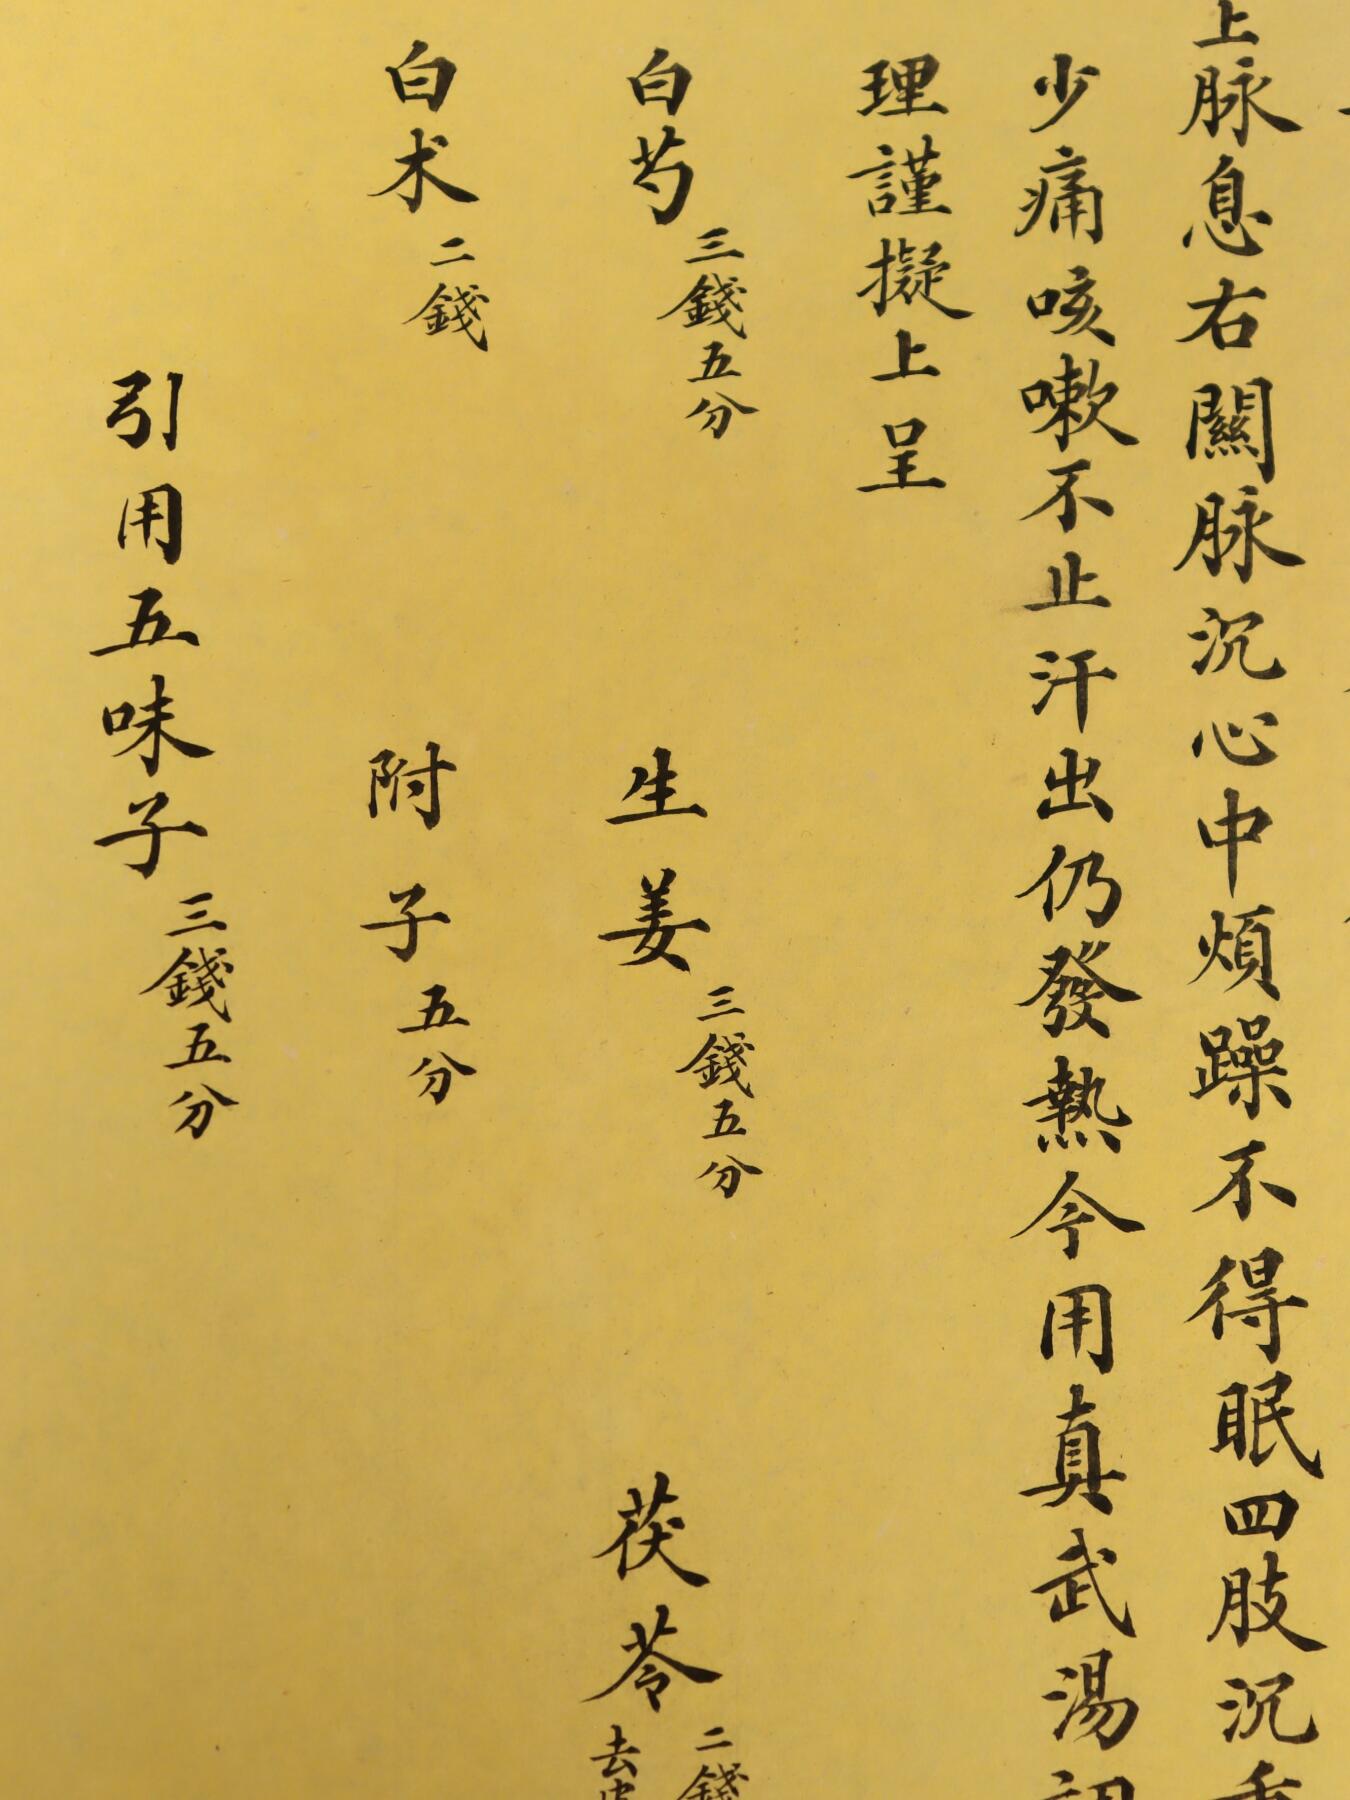 上脉息右關脉沉心中煩躁不得眠四肢沉
少痛咳嗽不止汗出仍發熱今用真武湯
理謹擬上呈
白芍三錢五分 生姜三錢五分 茯苓二錢去
白术二錢 附子五分
引用五味子三錢五分